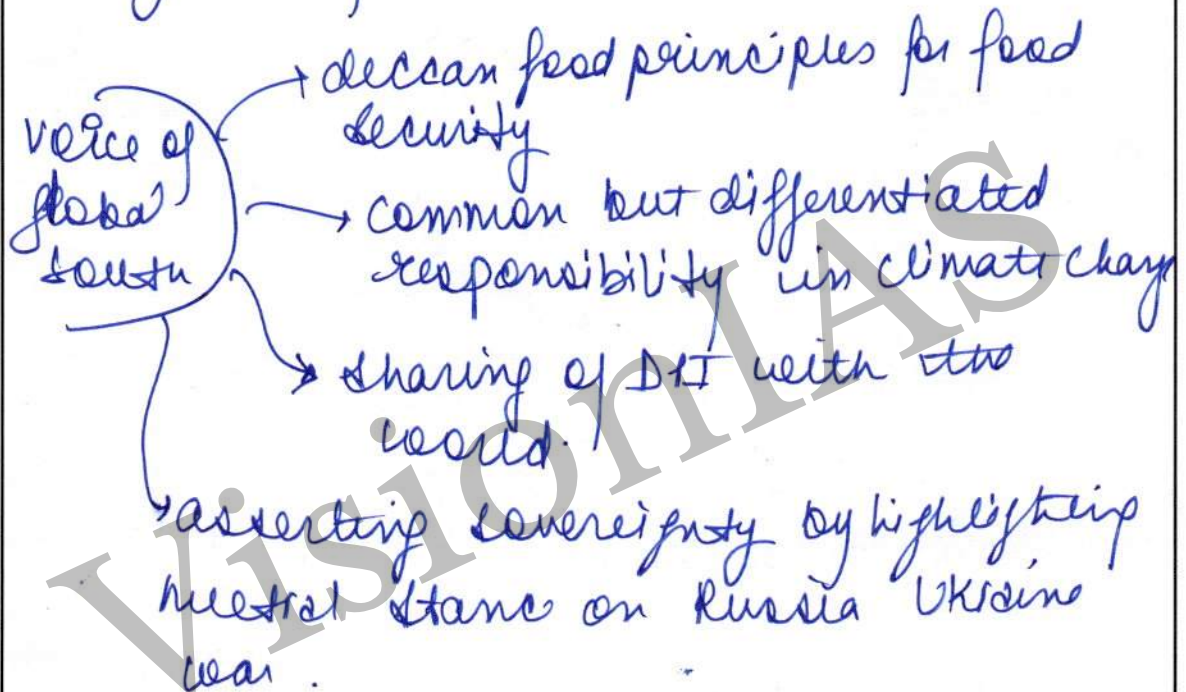 voice of
global
south
deccan food principles for food
security
common but differentiated
responsibility in climate change
sharing of DPI with the
world.
asserting sovereignty by highlighting
neutral stance on Russia Ukraine
war.
VisionIAS